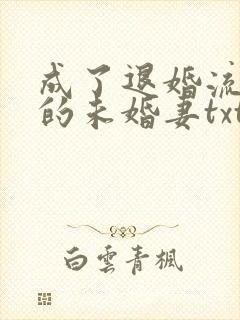 成了退婚流
的未婚妻txt
白雲青楓